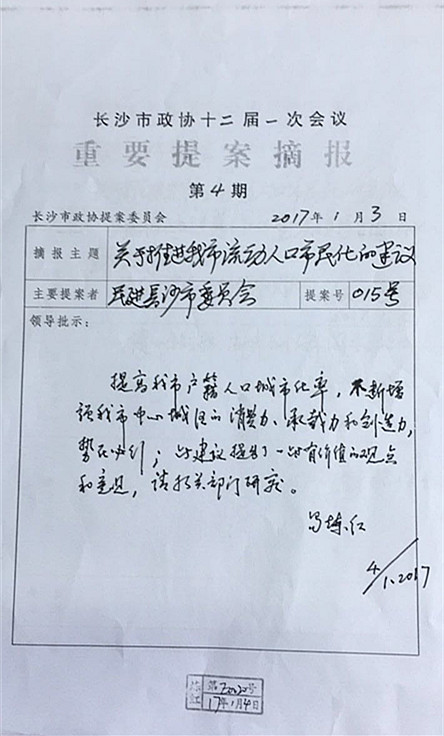 长沙市政协十二届一次会议
重要提案摘报
第4期
长沙市政协提案委员会 2017年1月3日
摘报主题 关于推进我市流动人口市民化的建议
主要提案者 民进长沙市委员会 提案号 015号
领导批示：
提高我市户籍人口城市化率，不断增
强我市中心城区的消费力、承载力和创造力，
势在必行；此建议提出了一些有价值的观点
和意见，请相关部门研究。
4/1.2017
第 号
17年1月4日